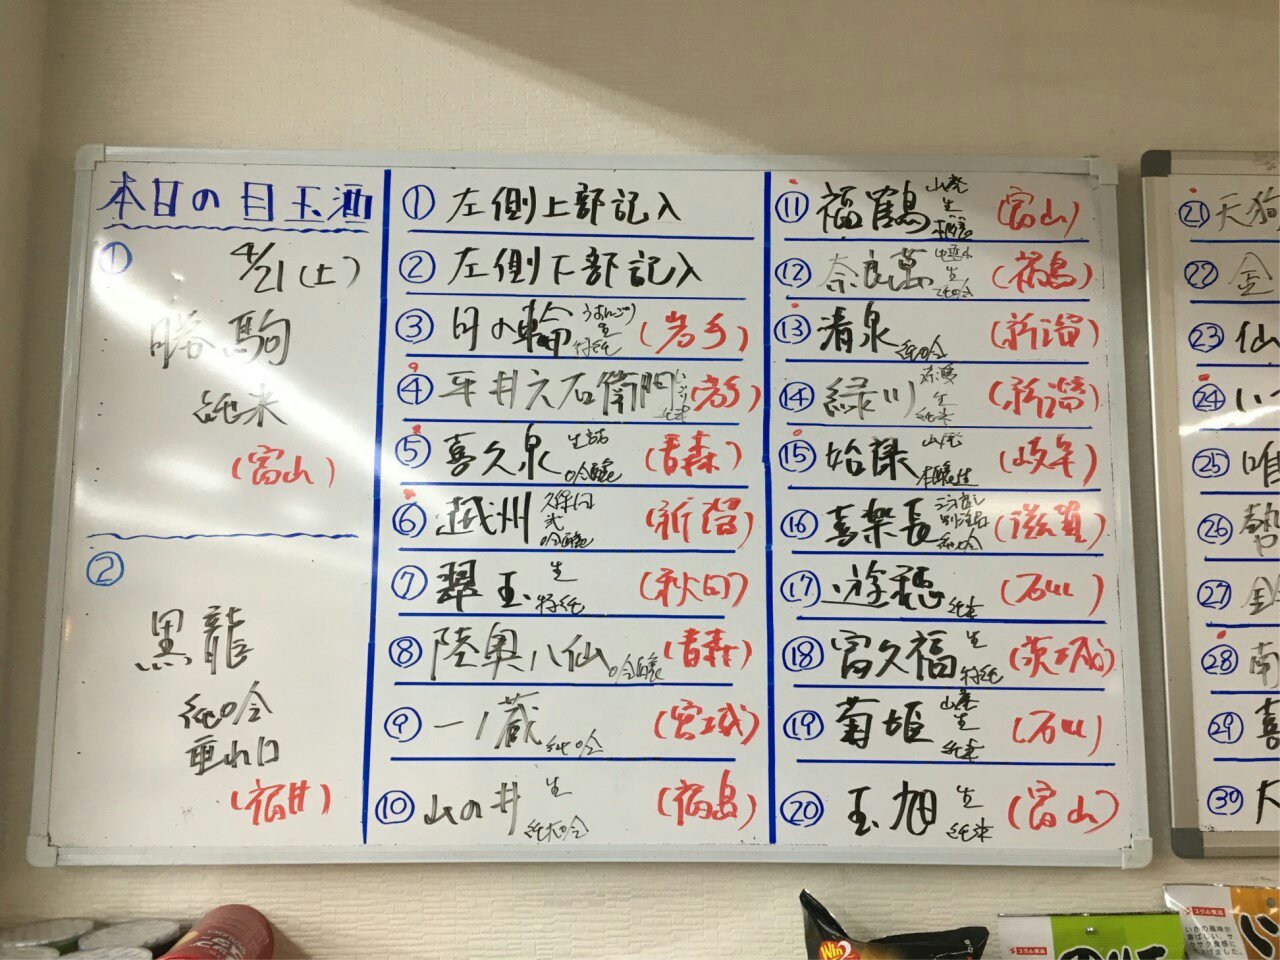 本日の目玉酒
① 4/21(土)
勝駒
純米
(富山)
②
黒龍
純吟
垂れ口
(福井)
① 左側上部記入
② 左側下部記入
③ 月の輪 生 特純 (岩手)
④ 平井六右衛門 純米 (岩手)
⑤ 喜久泉 生詰 吟醸 (青森)
⑥ 越州 吟醸 (新潟)
⑦ 翠玉 生 特純 (秋田)
⑧ 陸奥八仙 吟醸 (青森)
⑨ 一ノ蔵 純吟 (宮城)
⑩ 山の井 生 純大吟 (福島)
⑪ 福鶴 山廃 生 本醸 (富山)
⑫ 奈良萬 中垂れ 生 純吟 (福島)
⑬ 清泉 純吟 (新潟)
⑭ 緑川 生 純米 (新潟)
⑮ 始禄 山廃 本醸生 (岐阜)
⑯ 喜楽長 別注品 純吟 (滋賀)
⑰ 遊穂 純米 (石川)
⑱ 富久福 生 特純 (茨城)
⑲ 菊姫 山廃 生 純米 (石川)
⑳ 玉旭 生 純米 (富山)
㉑ 天狗
㉒ 金
㉓ 仙
㉔ い
㉕ 唯
㉖
㉗ 金
㉘ 南
㉙ 喜
㉚ 大
Win2
スグル食品
スグル食品
いかの風味が
香ばしい、サ
クサク食感に
仕上げました。